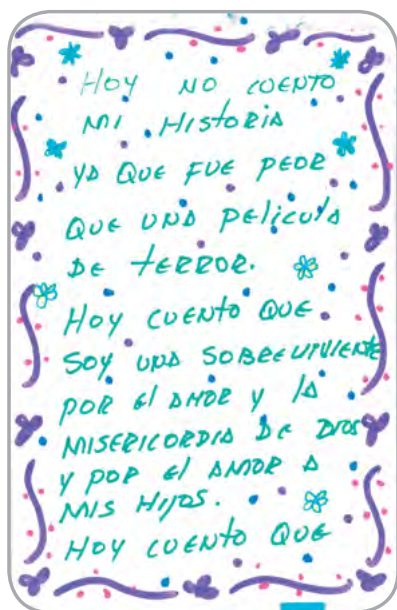 HOY NO CUENTO
MI HISTORIA
YA QUE FUE PEOR
QUE UNA PELÍCULA
DE TERROR.
HOY CUENTO QUE
SOY UNA SOBREVIVIENTE
POR El AMOR Y lA
MISERICORDIA DE DIOS
Y POR El AMOR A
MIS HIJOS.
HOY CUENTO QUE